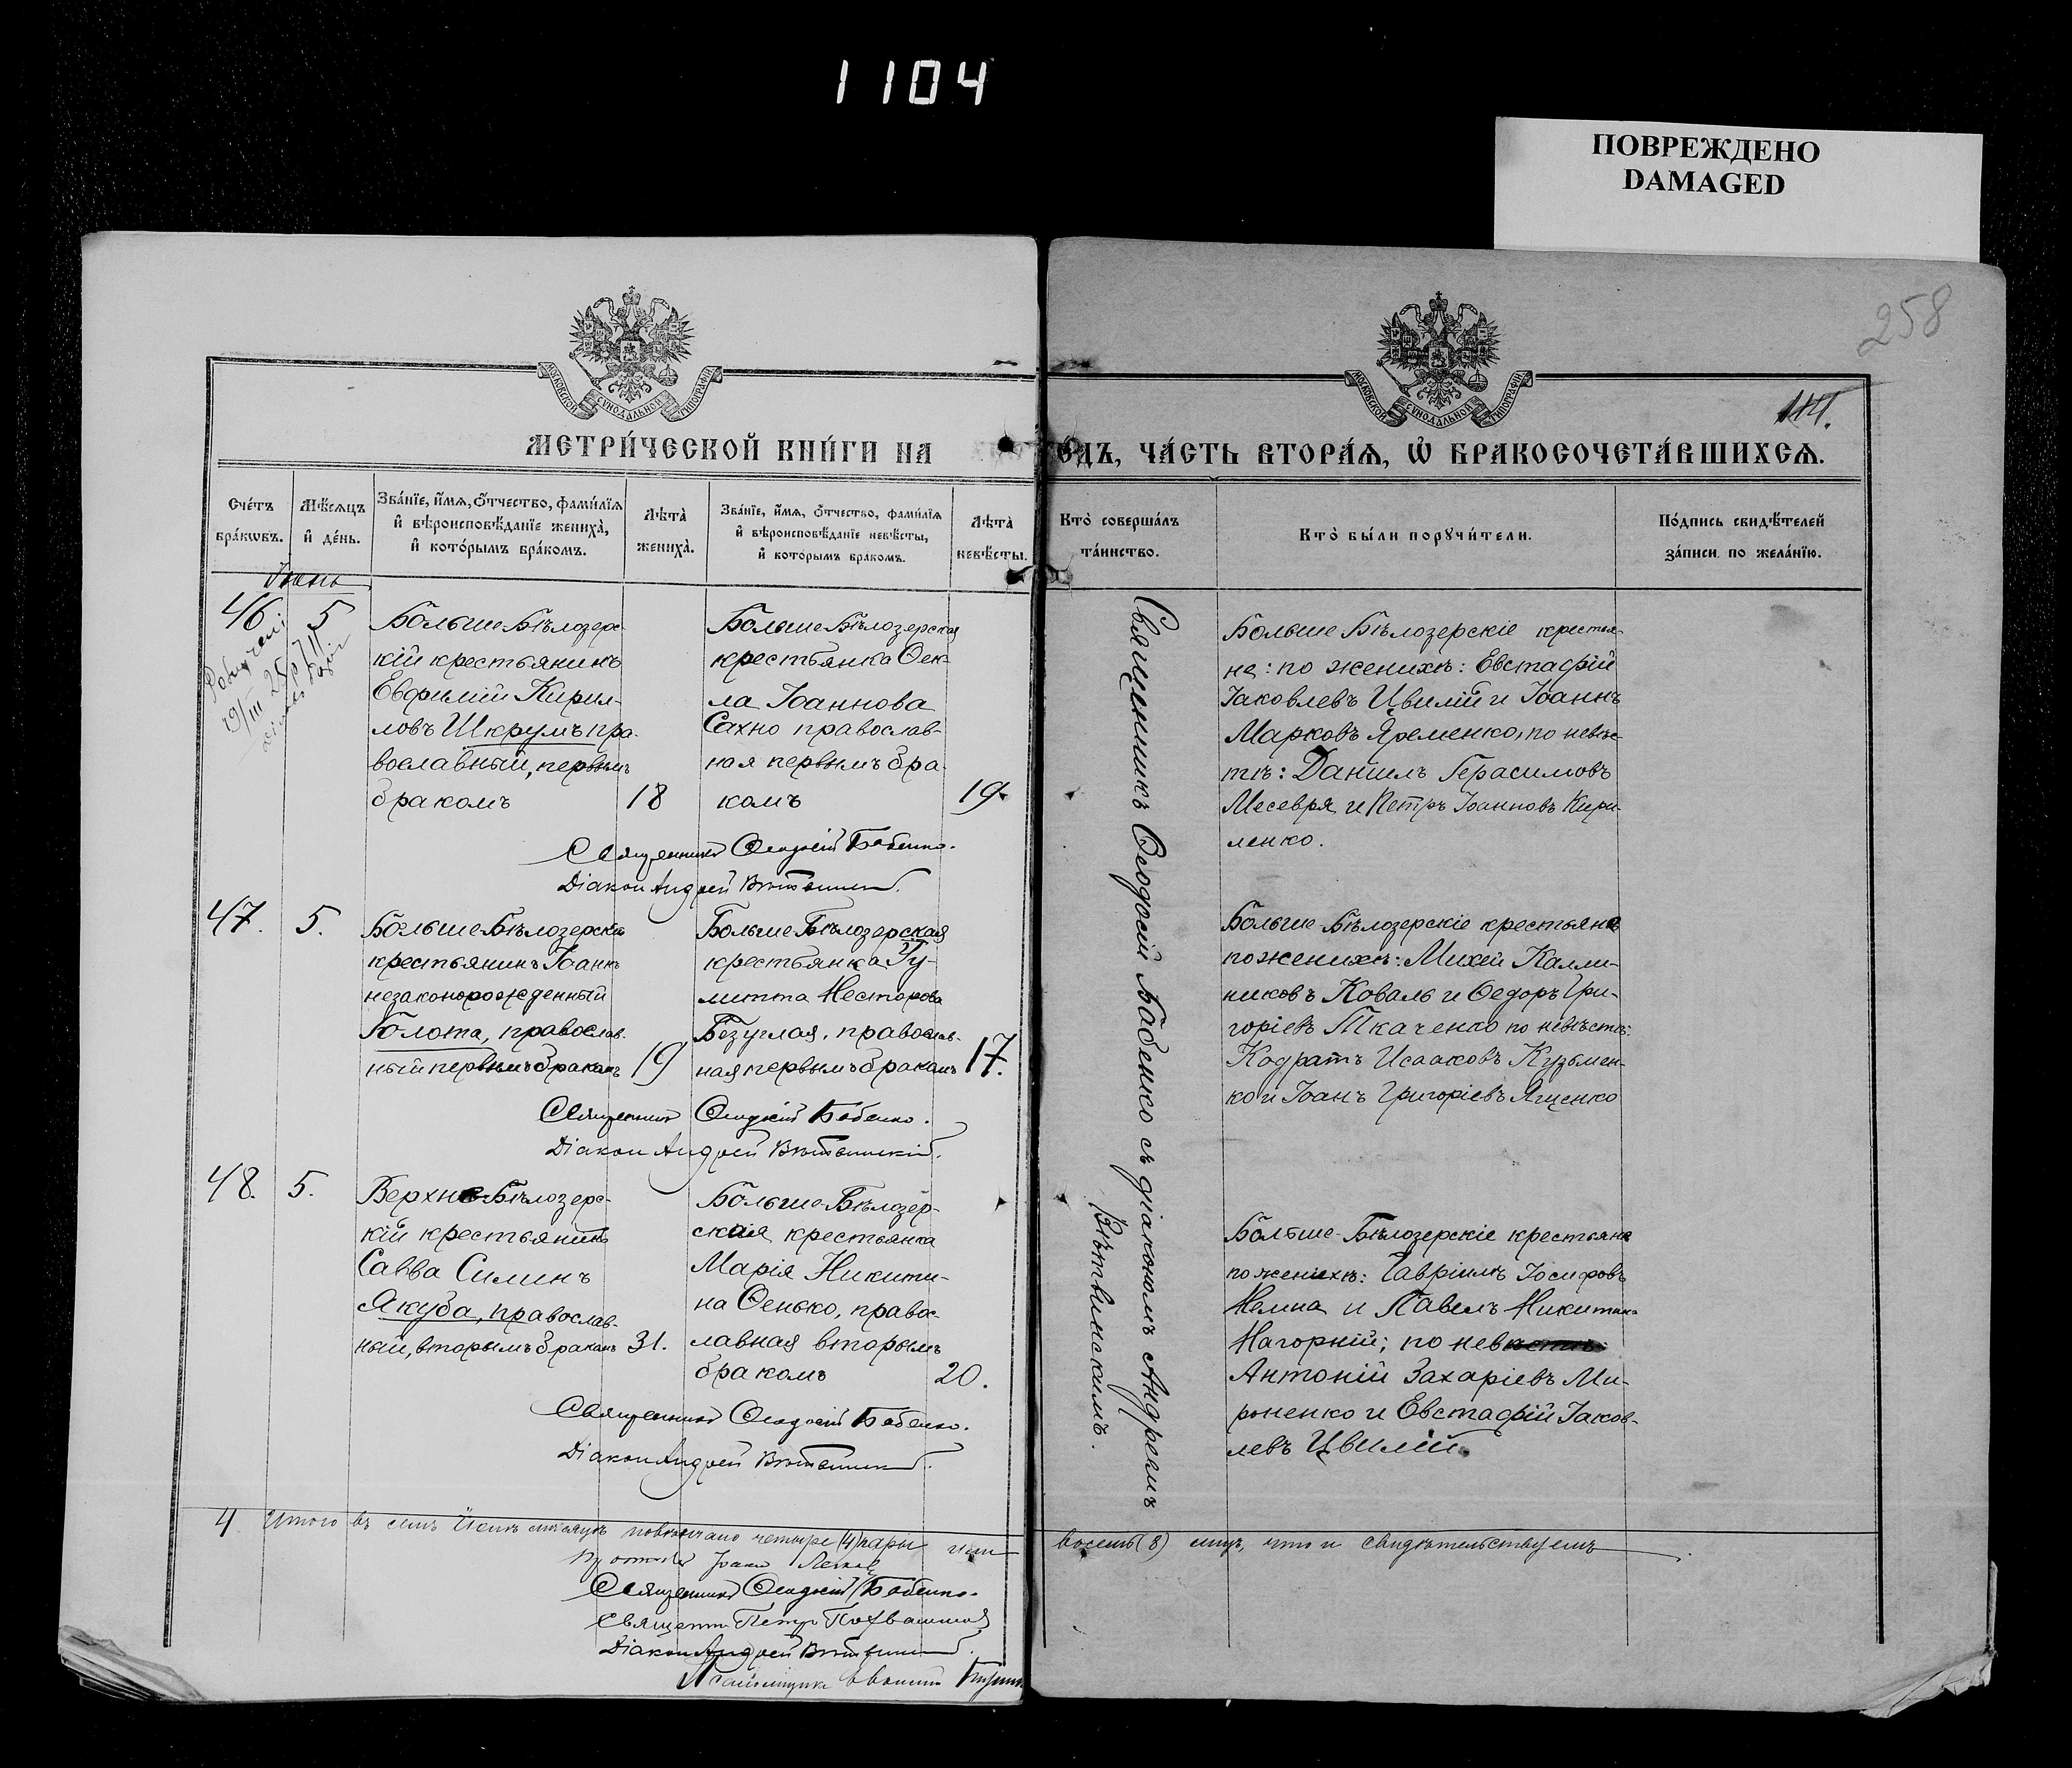 1104
ПОВРЕЖДЕНО
DAMAGED
258
МОСКОВСКОЙ СУНОДАЛЬНОЙ ТИПОГРАФІИ
МОСКОВСКОЙ СУНОДАЛЬНОЙ ТИПОГРАФІИ
МЕТРИ́ЧЕСКОЙ КНИ́ГИ НА
ГО́ДЪ, ЧА́СТЬ ВТОРА́Ѧ, Ѡ҆ БРАКОСОЧЕТА́ВШИХСѦ.
Сче́тъ
бра́кѡвъ.
Мѣ́сѧцъ
и҆ де́нь.
Зва́нїе, и҆́мѧ, ѻ҆́тчество, фами́лїѧ
и҆ вѣроисповѣ́данїе жениха̀,
и҆ кото́рымъ бра́комъ.
Лѣ́та̀
жениха̀.
Зва́нїе, и҆́мѧ, ѻ҆́тчество, фами́лїѧ
и҆ вѣроисповѣ́данїе невѣ́сты,
и҆ кото́рымъ бракомъ.
Лѣ́та̀
невѣ́сты.
Кто̀ соверша́лъ
та́инство.
Кто̀ бы́ли порꙋчи́тели.
По́дпись свидѣ́телей
за́писи по жела́нїю.
Іюнь
46.
5
Больше Бѣлозерс-
кій крестьянинъ
Евфимій Кирил-
ловъ Шкрумъ пра-
вославный, первымъ
бракомъ
18
Больше Бѣлозерская
крестьянка Ѳек-
ла Іоаннова
Сахно православ-
ная первымъ бра-
комъ
19.
Больше Бѣлозерскіе крестья-
не: по женихѣ: Евстафій
Іаковлевъ Цвилій и Іоаннъ
Марковъ Яременко, по невѣс-
тѣ: Даніилъ Герасимовъ
Месевря и Петръ Іоанновъ Кири-
ленко.
Священникъ Ѳеодосій Бабенко.
Діаконъ Андрей Вѣтвинскій.
47.
5.
Больше Бѣлозерскій
крестьянинъ Іоаннъ
незаконорожденный
Болота, православ-
ный первымъ бракомъ
19
Больше Бѣлозерская
крестьянка Іу-
литта Несторова
Безуглая, православ-
ная первымъ бракомъ
17.
Больше-Бѣлозерскіе крестьяне
по женихѣ: Михей Калли-
никовъ Коваль и Ѳедоръ Гри-
горіевъ Ткаченко по невѣстѣ:
Кодратъ Исааковъ Кузьмен-
ко и Іоанъ Григоріевъ Ященко
Священникъ Ѳеодосій Бабенко.
Діаконъ Андрей Вѣтвинскій.
48.
5.
Верхне-Бѣлозерс-
кій крестьянинъ
Савва Силинъ
Якуба, православ-
ный, вторымъ бракомъ
31.
Больше-Бѣлозер-
ская крестьянка
Марія Никити-
на Ѳенько, правос-
лавная вторымъ
бракомъ
20.
Больше-Бѣлозерскіе крестьяне
по женихѣ: Гавріилъ Іосифовъ
Нелипа и Павелъ Никитинъ
Нагорній; по невѣстѣ:
Антоній Захаріевъ Ми-
роненко и Евстафій Іаков-
левъ Цвилій.
Священникъ Ѳеодосій Бабенко.
Діаконъ Андрей Вѣтвинскій.
Священникъ Ѳеодосій Бабенко съ діакономъ Андреемъ
Вѣтвинскимъ.
4
Итого въ семъ Іюнѣ мѣсяцѣ повѣнчано четыре (4) пары или
восемь (8) лицъ, что и свидѣтельствуемъ
Священникъ Ѳеодосій Бабенко.
Священникъ Петръ
Діаконъ Андрей Вѣтвинскій.